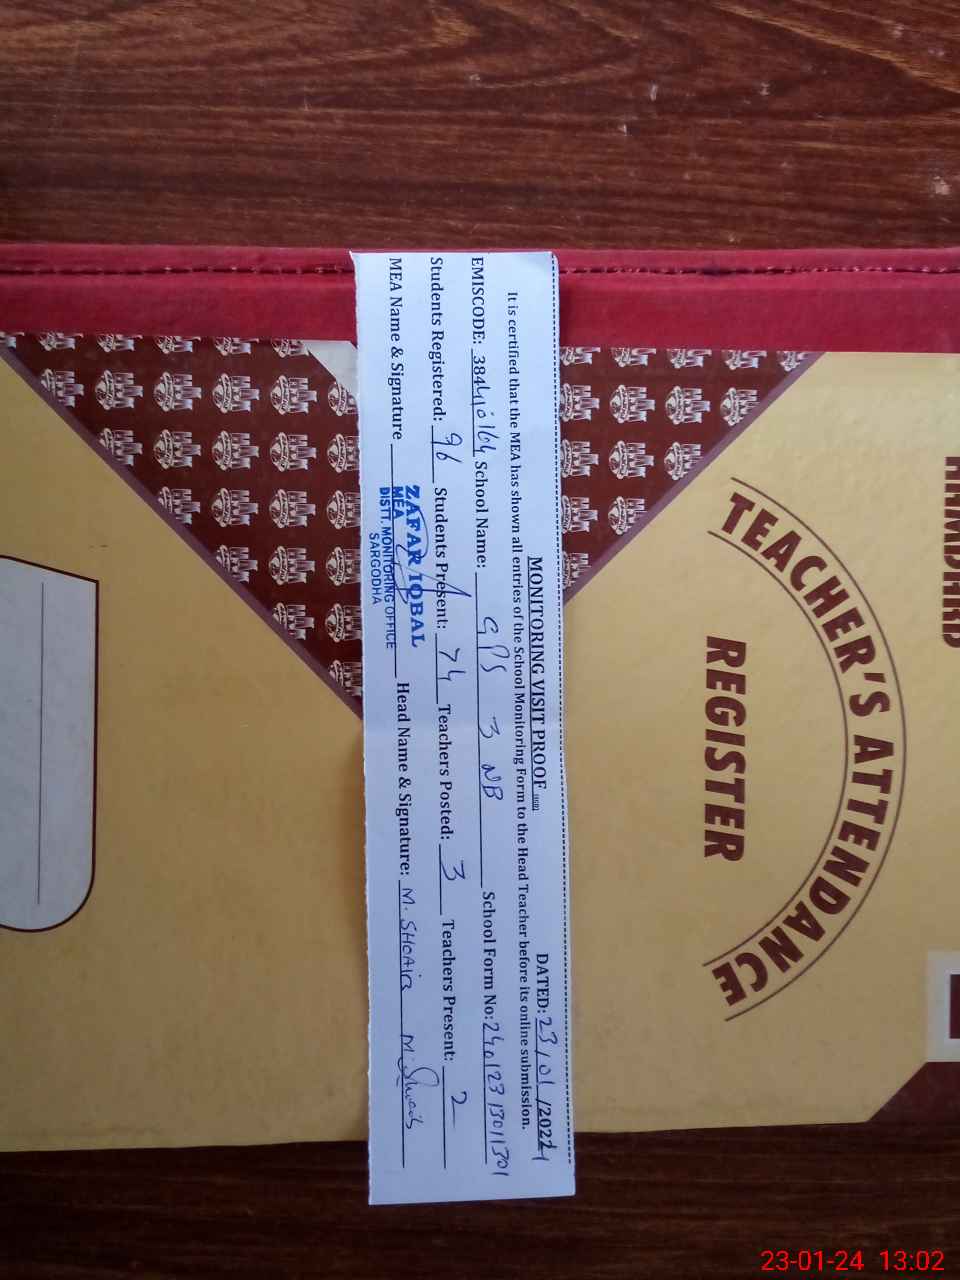 MONITORING VISIT PROOF
DATED: 23/01/2024
It is certified that the MEA has shown all entries of the School Monitoring Form to the Head Teacher before its online submission.
EMISCODE: 38410164 School Name: GPS 3 NB School Form No: 24012313011301
Students Registered: 96 Students Present: 74 Teachers Posted: 3 Teachers Present: 2
MEA Name & Signature Head Name & Signature: M. SHOAIB M. Shoaib
ZAFAR IQBAL
MEA
DISTT. MONITORING OFFICE
SARGODHA
TEACHER'S ATTENDANCE
REGISTER
23-01-24 13:02